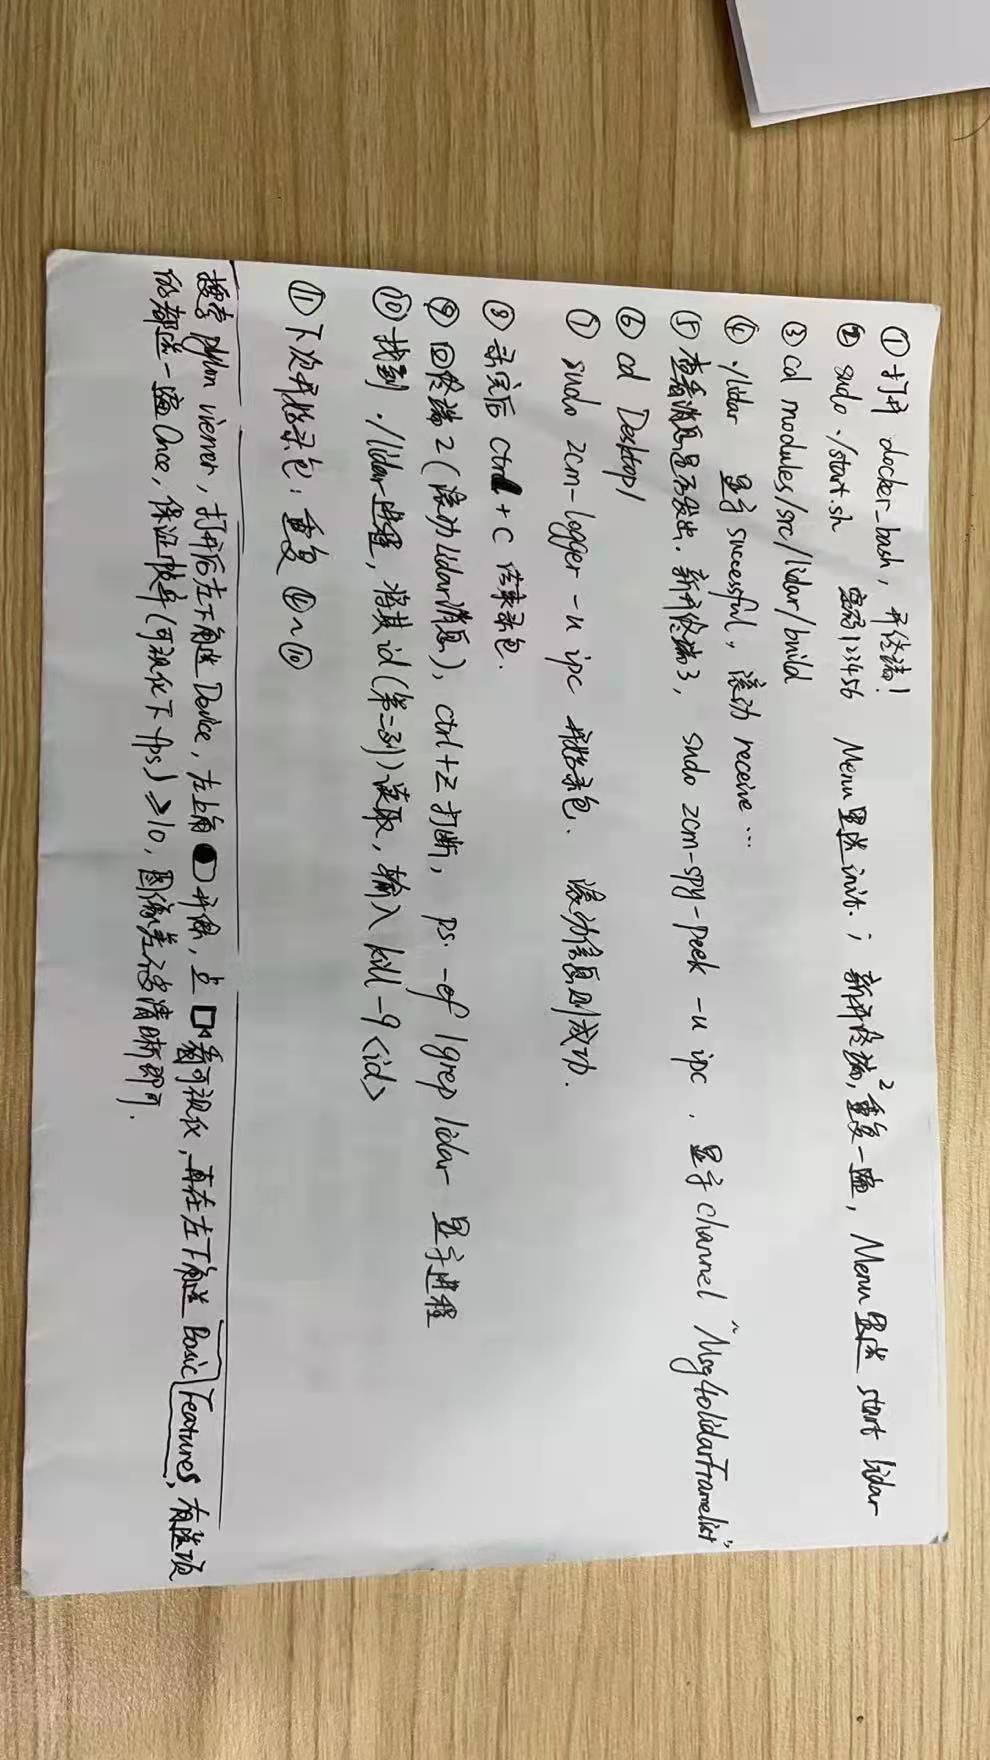 ① 打开 docker_bash, 开终端!
② sudo ./start.sh 密码123456 Menu里选init.; 新开终端2, 重复一遍, Menu里选 start lidar
③ cd modules/src/lidar/build
④ ./lidar 显示 successful, 滚动 receive …
⑤ 查看消息是否发出. 新开终端3, sudo zcm-spy-peek -u ipc , 显示 channel "Msg40lidarFramelist"
⑥ cd Desktop/
⑦ sudo zcm-logger -u ipc 开始录包. 滚动信息则成功.
⑧ 录完后 ctrl + C 结束录包.
⑨ 回终端2(滚动Lidar消息), ctrl+Z 打断, ps. -ef |grep lidar 显示进程
⑩ 找到 ./lidar进程, 将其id(第二列)读取, 输入 kill -9 <id>
⑪ 下次开始录包: 重复 ④~⑩
搜索 pylon viewer, 打开后左下角选 Device, 左上角 开, 点 看可视化, 再在左下角选 Basic Features, 有选项
的都选一遍 Once, 保证帧率(可视化下 fps) ≥10, 图像差不多清晰即可.